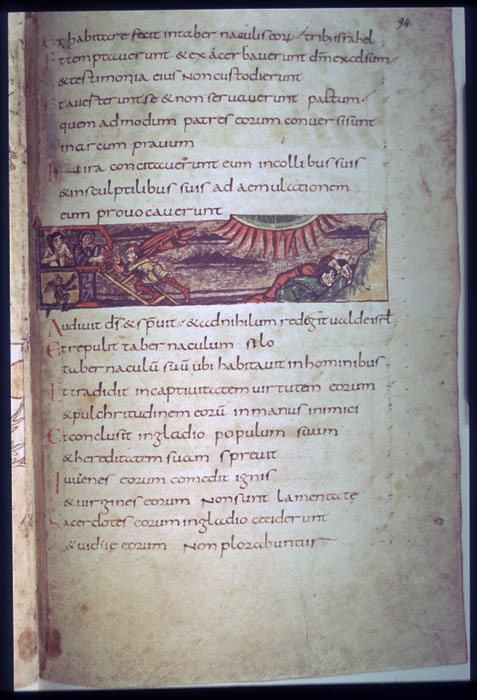 94.
Et habitare fecit intabernaculis eorū tribus israhel
Et temptaverunt · & exacerbaverunt dm̄ excelsum ·
& testimonia eius Non custodierunt
Et averterunt se & non servaverunt pactum ·
quem admodum patres eorum conversi sunt
in arcum pravum
In ira concitaverunt eum incollibus suis
& insculptilibus suis ad aemulationem
eum provocaverunt
Audivit ds̄ & sp̄vit · & ad nihilum redegit valde isrl̄
Et repulit tabernaculum silo
tabernaculū suū ubi habitavit in hominibus ·
Et tradidit in captivitatem virtutem eorum
& pulchritudinem eorū in manus inimici
Et conclusit in gladio populum suum
& hereditatem suam sprevit
Iuvenes eorum comedit ignis
& virgines eorum Non sunt lamentate
Sacerdotes eorum in gladio ceciderunt
& vidue eorum Non plorabuntur